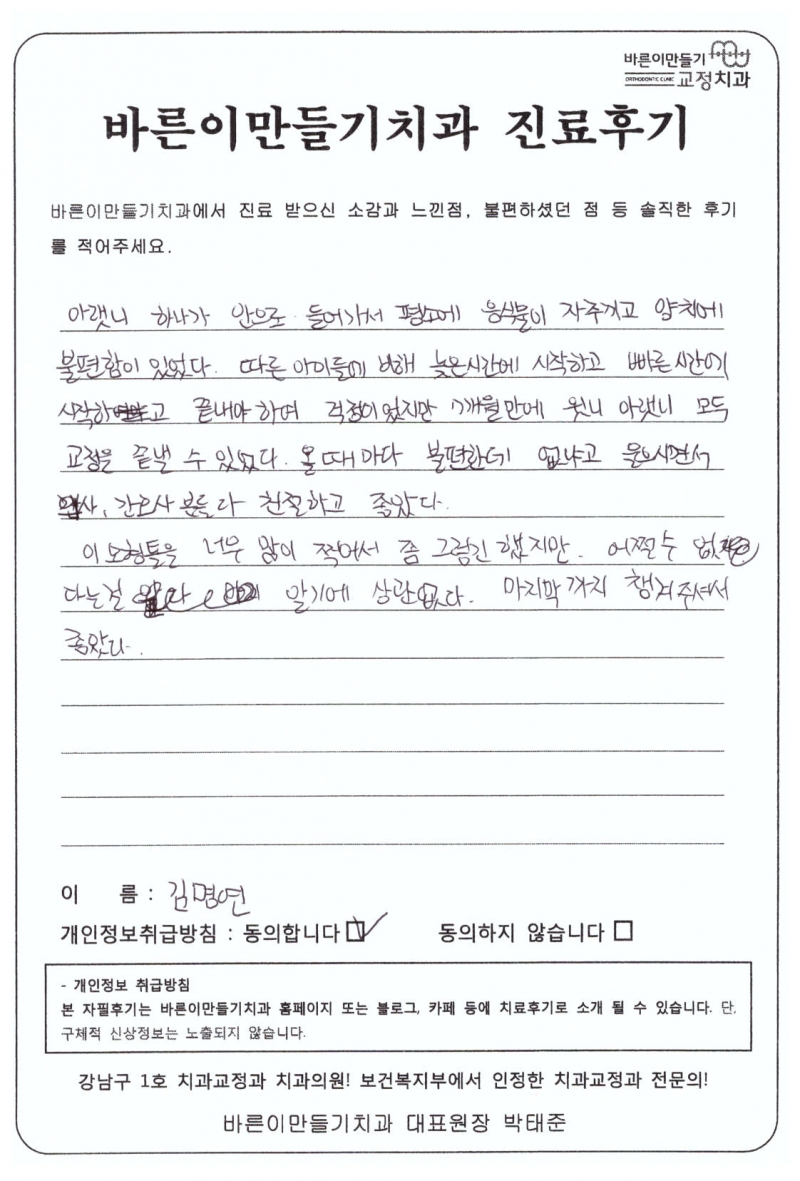 바른이만들기
ORTHODONTIC CLINIC 교정치과
바른이만들기치과 진료후기
바른이만들기치과에서 진료 받으신 소감과 느낀점, 불편하셨던 점 등 솔직한 후기
를 적어주세요.
아랫니 하나가 안으로 들어가서 평소에 음식물이 자주끼고 양치에
불편함이 있었다. 따른 아이들에 비해 늦은시간에 시작하고 빠른시간에
시작하고 끝내야 하여 걱정이 있지만 7개월만에 윗니 아랫니 모두
교정을 끝낼 수 있었다. 올때마다 불편한데 없냐고 물으시면서
의사, 간호사 분들 다 친절하고 좋았다.
이 모형틀을 너무 많이 찍어서 좀 그렇긴 했지만. 어쩔수 없
다는걸 알기에 상관없다. 마지막까지 챙겨주셔서
좋았다.
이 름 : 김명연
개인정보취급방침 : 동의합니다 동의하지 않습니다
- 개인정보 취급방침
본 자필후기는 바른이만들기치과 홈페이지 또는 블로그, 카페 등에 치료후기로 소개 될 수 있습니다. 단,
구체적 신상정보는 노출되지 않습니다.
강남구 1호 치과교정과 치과의원! 보건복지부에서 인정한 치과교정과 전문의!
바른이만들기치과 대표원장 박태준